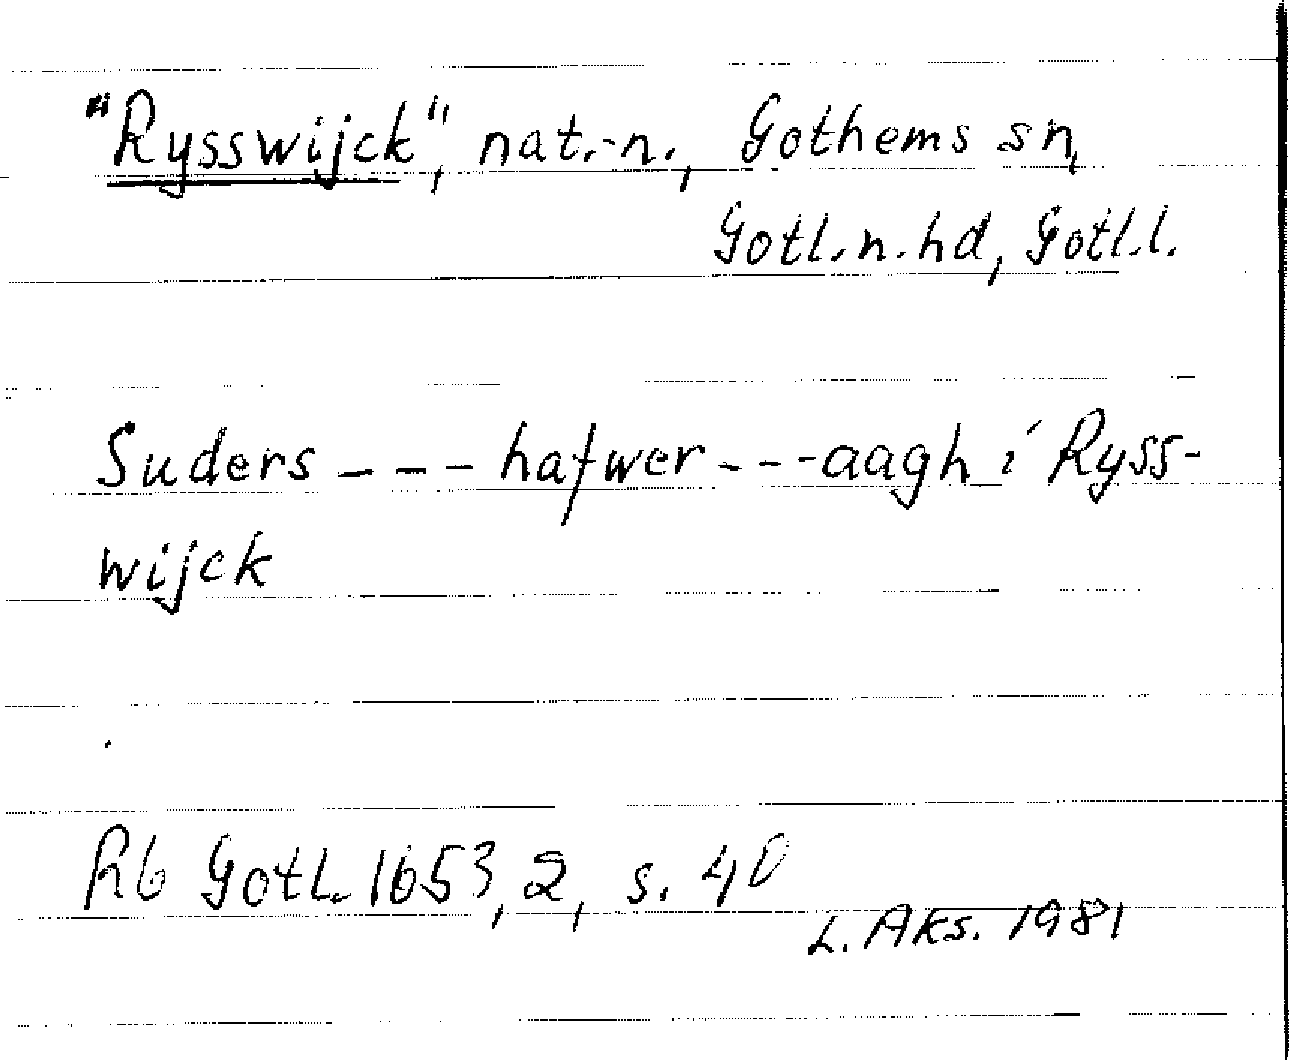 "Rysswijck", nat.-n., Gothems sn,
Gotl.n.hd, Gotl.l.
Suders - - - hafwer - - - aagh i Ryss-
wijck
Rb Gotl. 1653, 2, s. 40
L. Aks. 1981